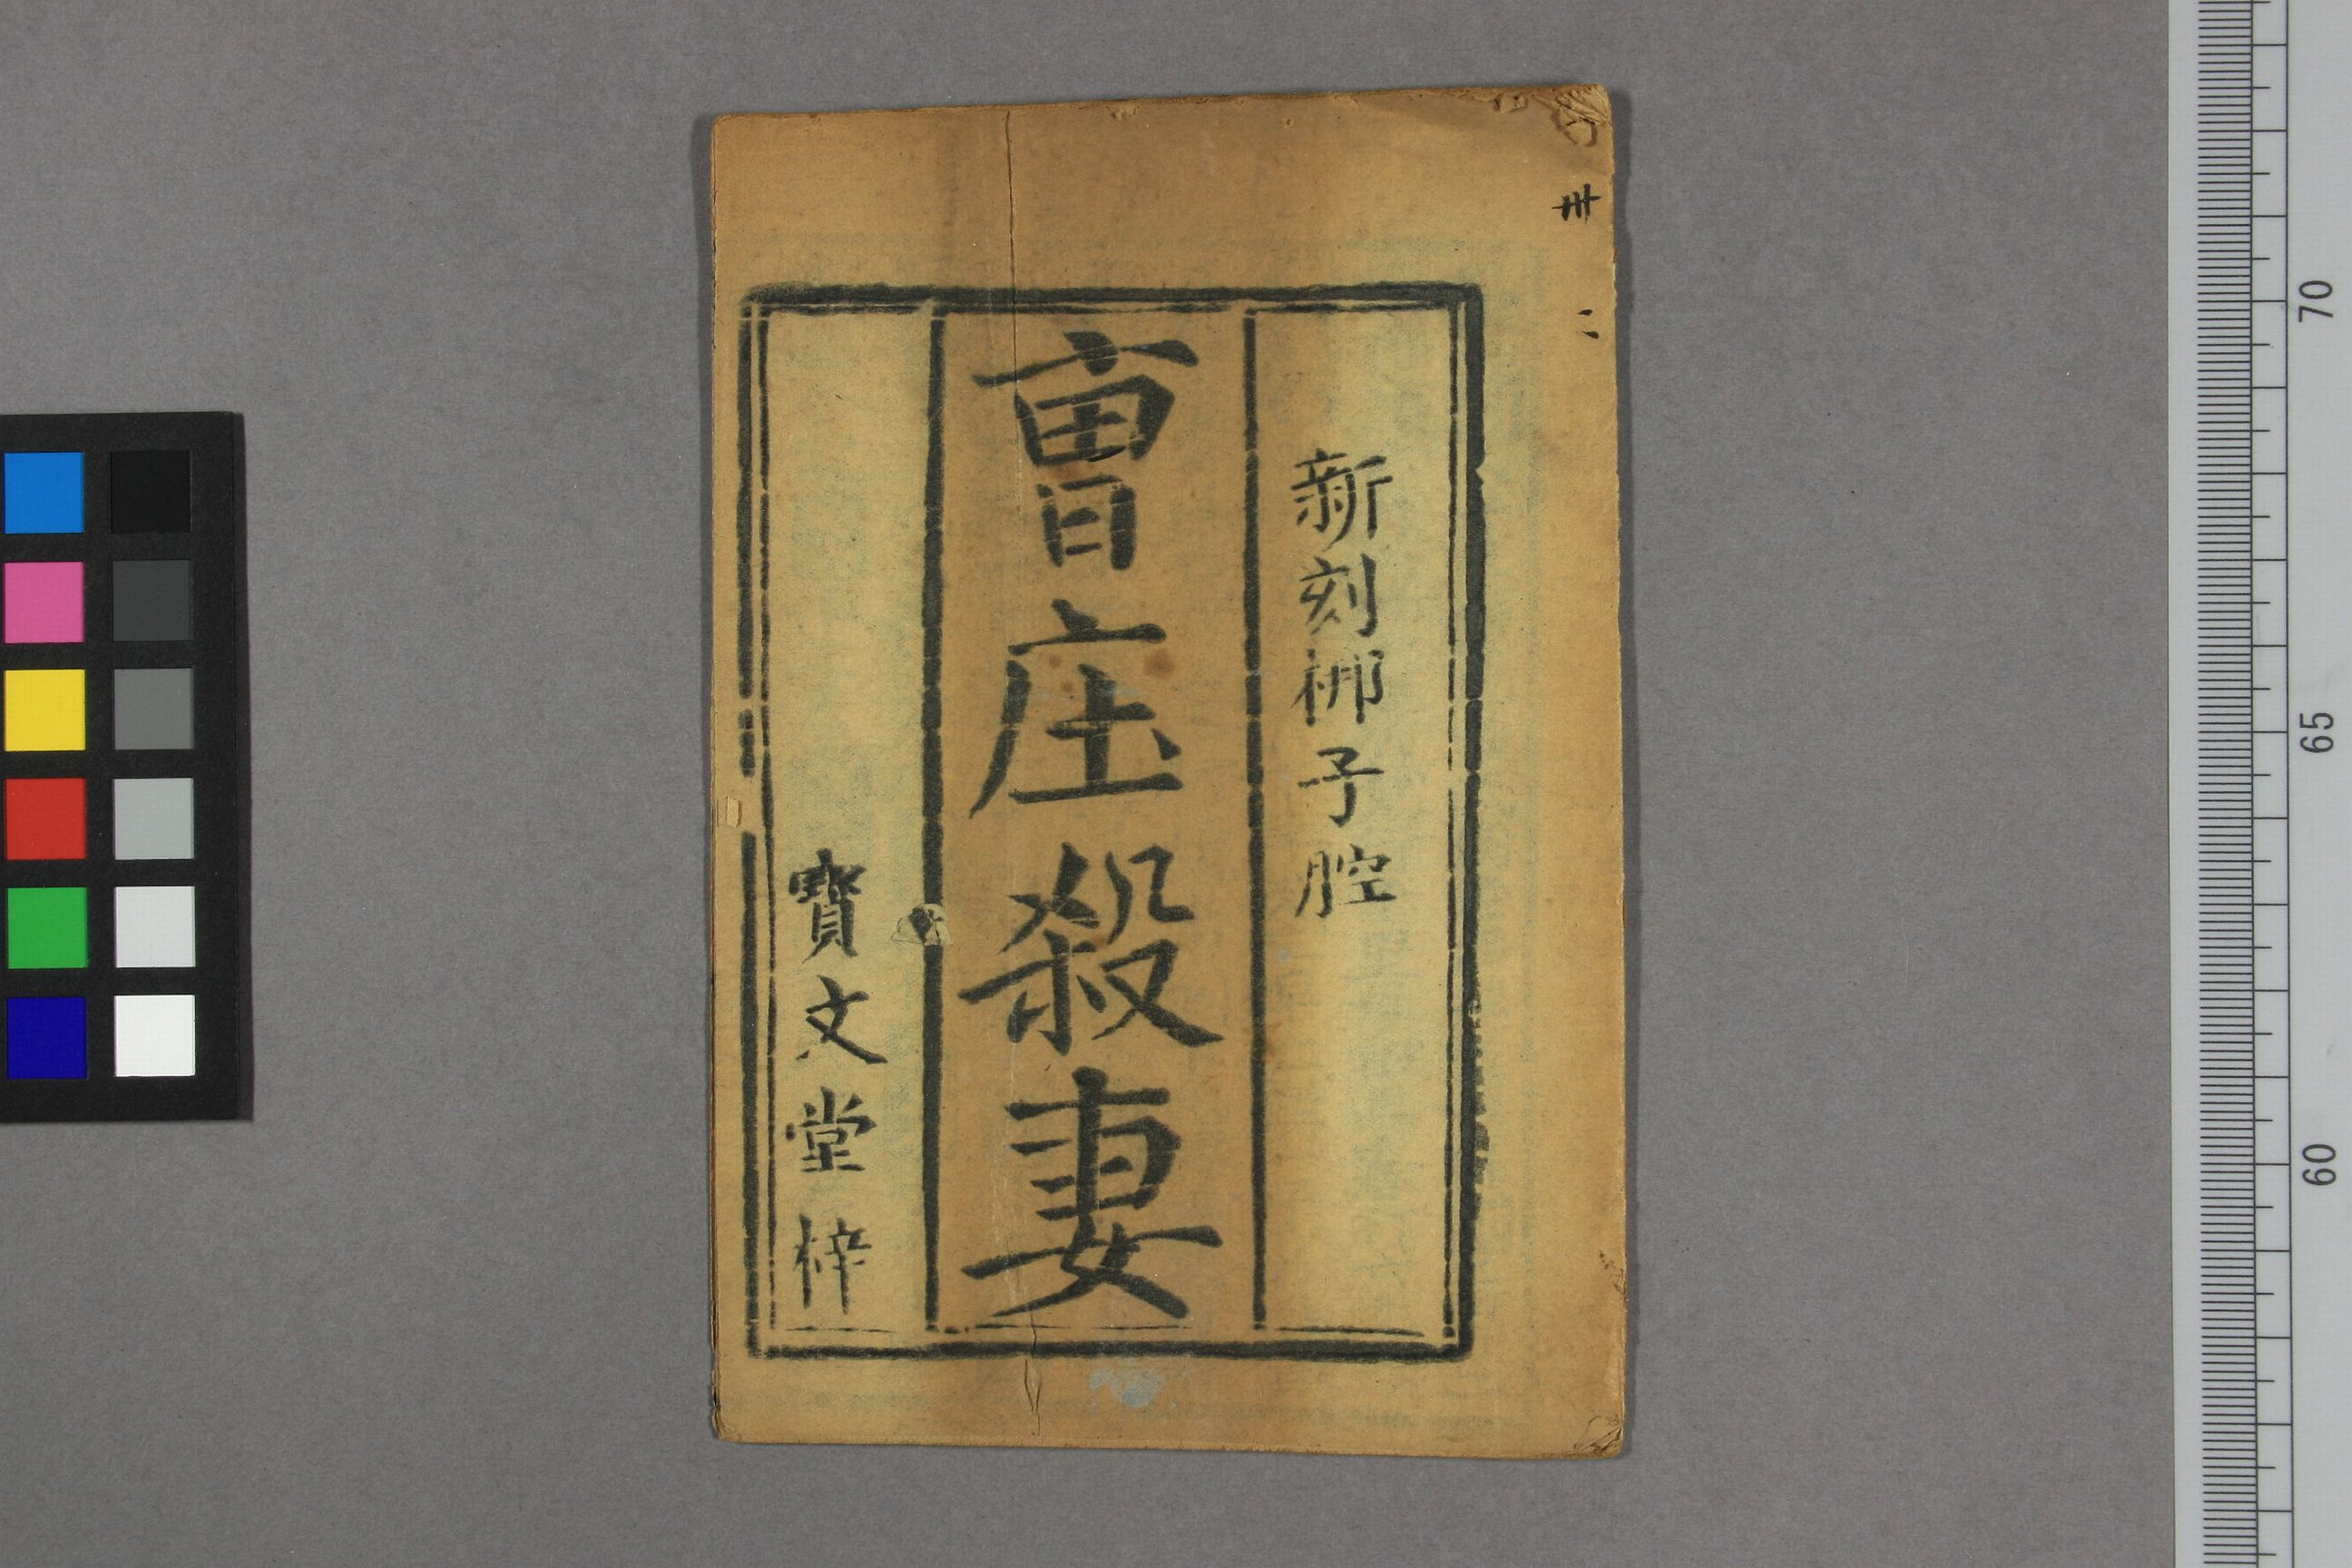 卅
新刻梆子腔
曹庄殺妻
寶文堂梓
70
65
60